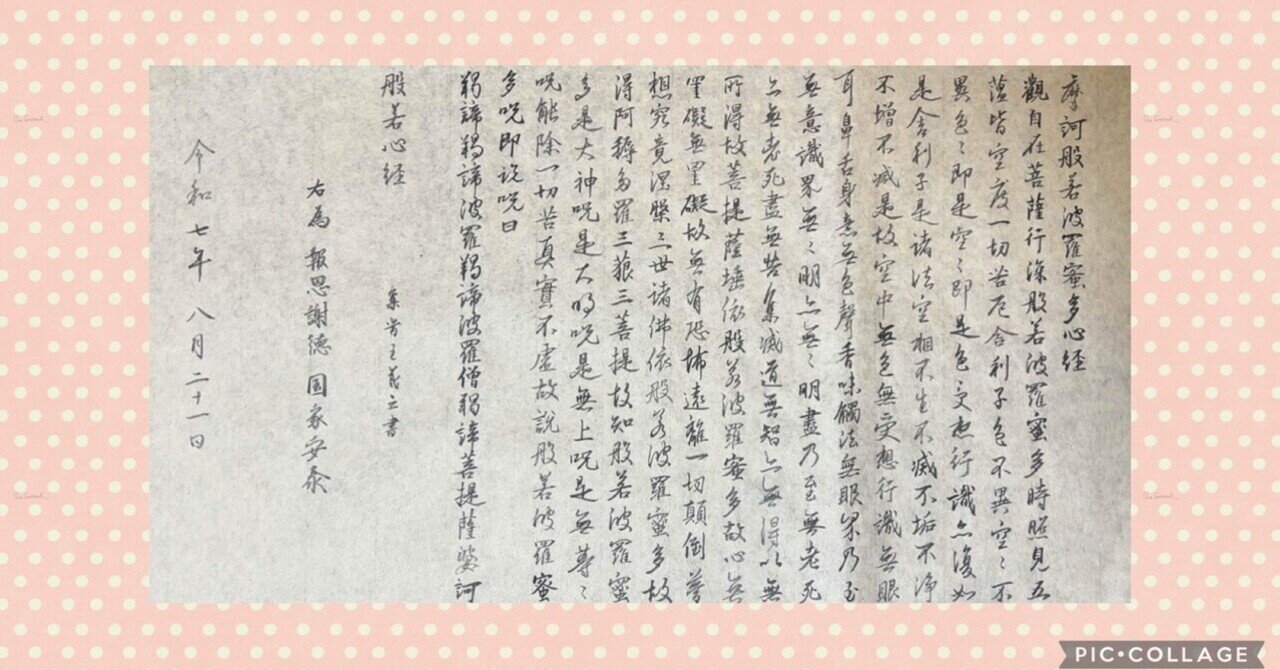 摩訶般若波羅蜜多心経
觀自在菩薩行深般若波羅蜜多時照見五
蘊皆空度一切苦厄舎利子色不異空〻不
異色〻即是空〻即是色受想行識亦復如
是舎利子是諸法空相不生不滅不垢不浄
不增不減是故空中無色無受想行識無眼
耳鼻舌身意無色聲香味觸法無眼界乃至
無意識界無〻明亦無〻明盡乃至無老死
亦無老死盡無苦集滅道無智亦無得以無
所得故菩提薩埵依般若波羅蜜多故心無
罣礙無罣礙故無有恐怖遠離一切顛倒夢
想究竟涅槃三世諸佛依般若波羅蜜多故
得阿耨多羅三藐三菩提故知般若波羅蜜
多是大神呪是大明呪是無上呪是無等〻
呪能除一切苦真實不虚故說般若波羅蜜
多呪即說呪曰
羯諦羯諦波羅羯諦波羅僧羯諦菩提薩婆訶
般若心経
集晋王羲之書
右為 報恩謝徳 国家安泰
令和七年 八月二十一日
PIC•COLLAGE